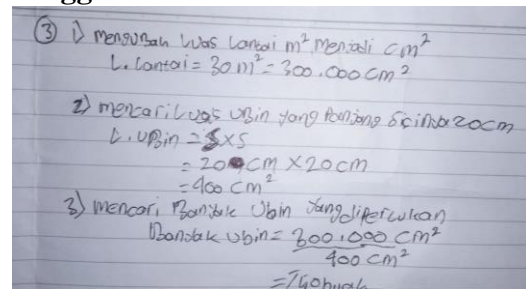 ③ 1) mengubah luas lantai m² menjadi cm²
L. Lantai = 30 m² = 300.000 cm²
2) mencari luas ubin yang panjang sisinya 20cm
L. Ubin = S x S
= 20 cm x 20 cm
= 400 cm²
3) mencari Banyak Ubin yang diperlukan
Banyak ubin = 300.000 cm²
400 cm²
= 750 buah